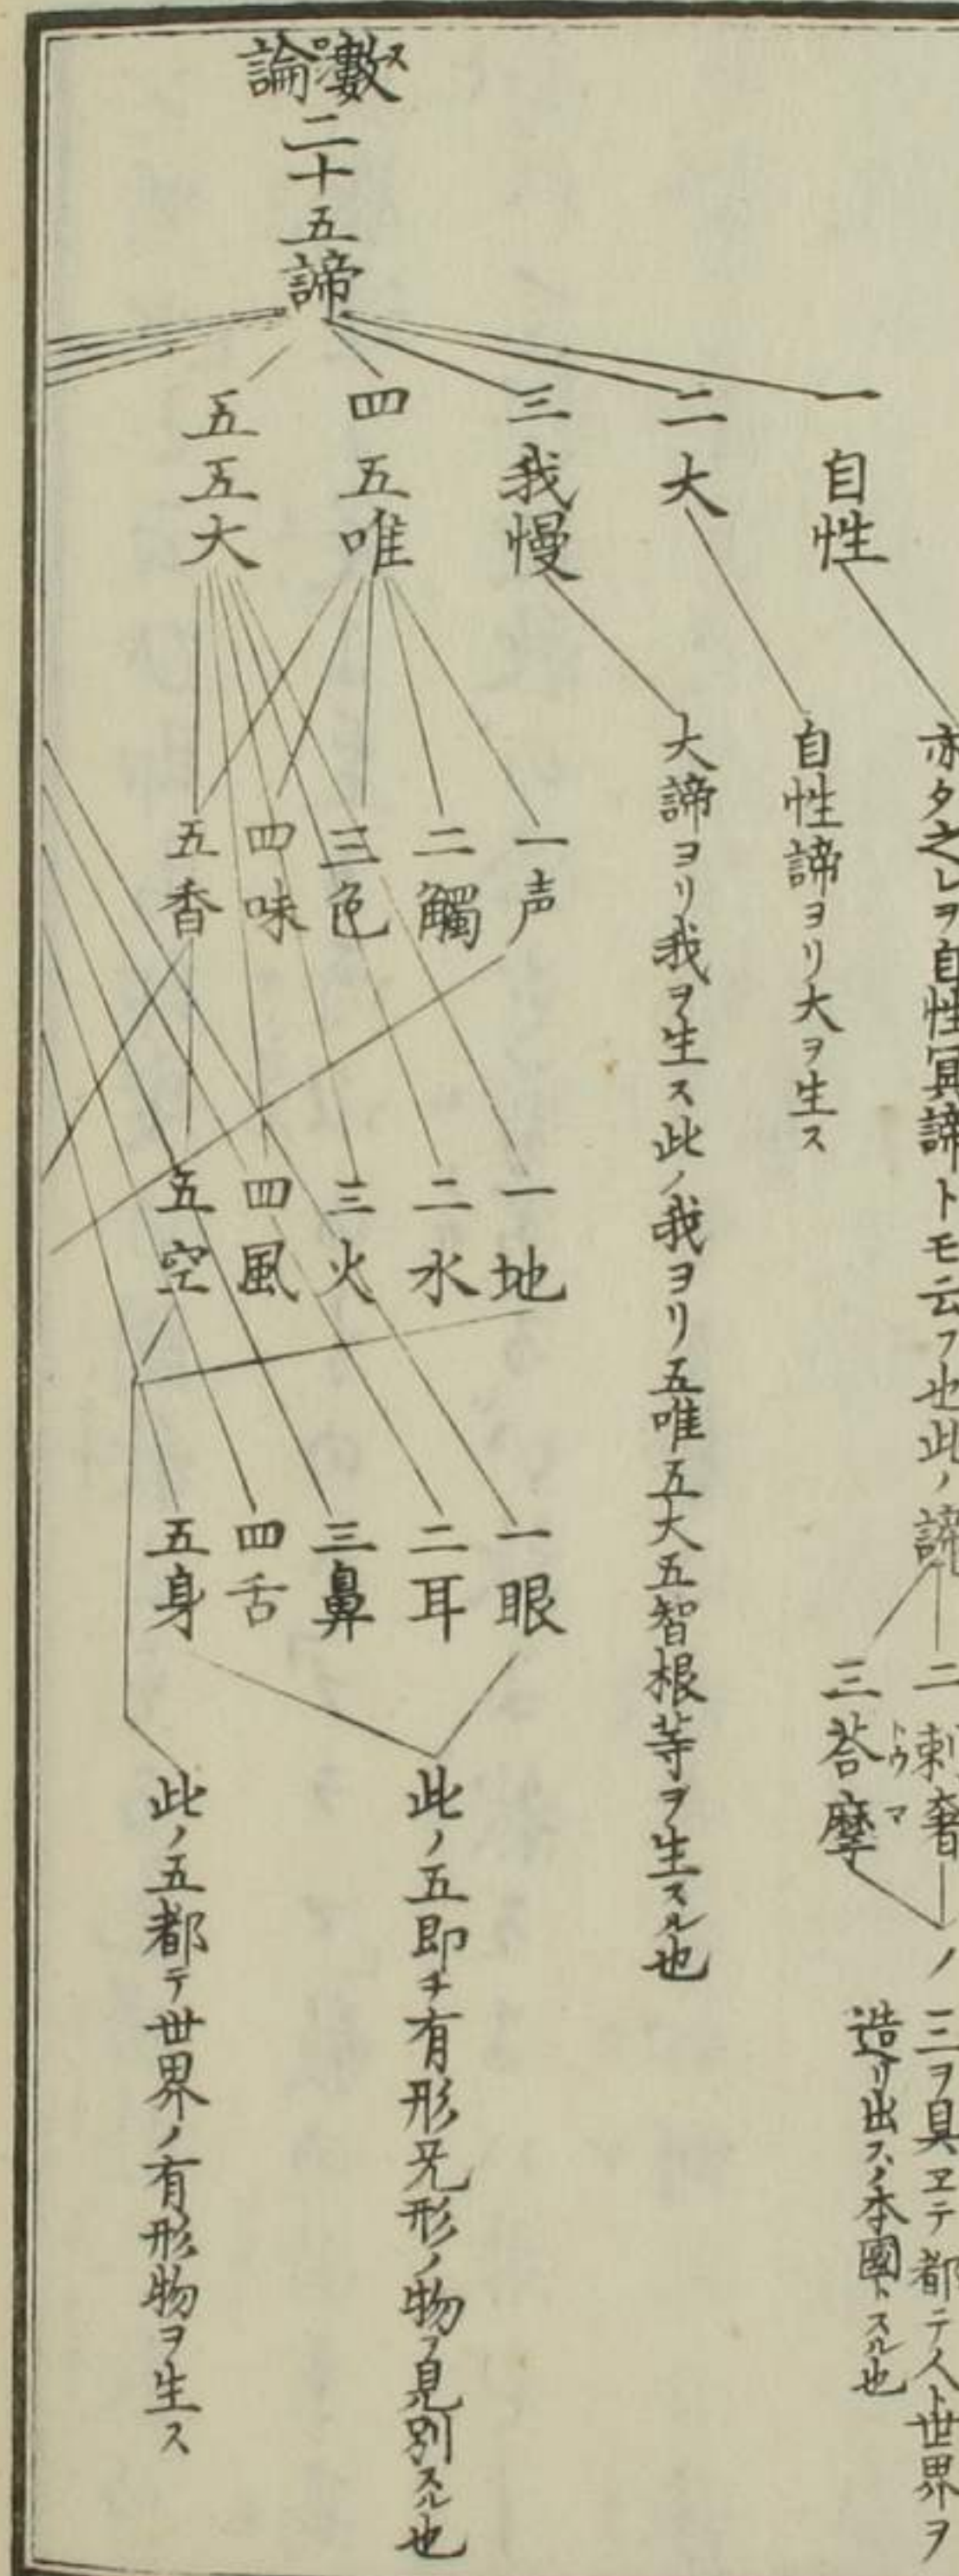 数論
二十五諦
一自性
亦タ之レヲ自性冥諦トモ云フ也此ノ諦
二刺奢
三荅摩
トウマ
ノ三ヲ具ヱテ都テ人ト世界ヲ
造リ出スノ本國トスル也
二大
自性諦ヨリ大ヲ生ス
三我慢
大諦ヨリ我ヲ生ス此ノ我ヨリ五唯五大五智根等ヲ生スル也
四五唯
一声
二觸
三色
四味
五香
五五大
一地
二水
三火
四風
五空
一眼
二耳
三鼻
四舌
五身
此ノ五即チ有形无形ノ物ヲ見別スル也
此ノ五都テ世界ノ有形物ヲ生ス